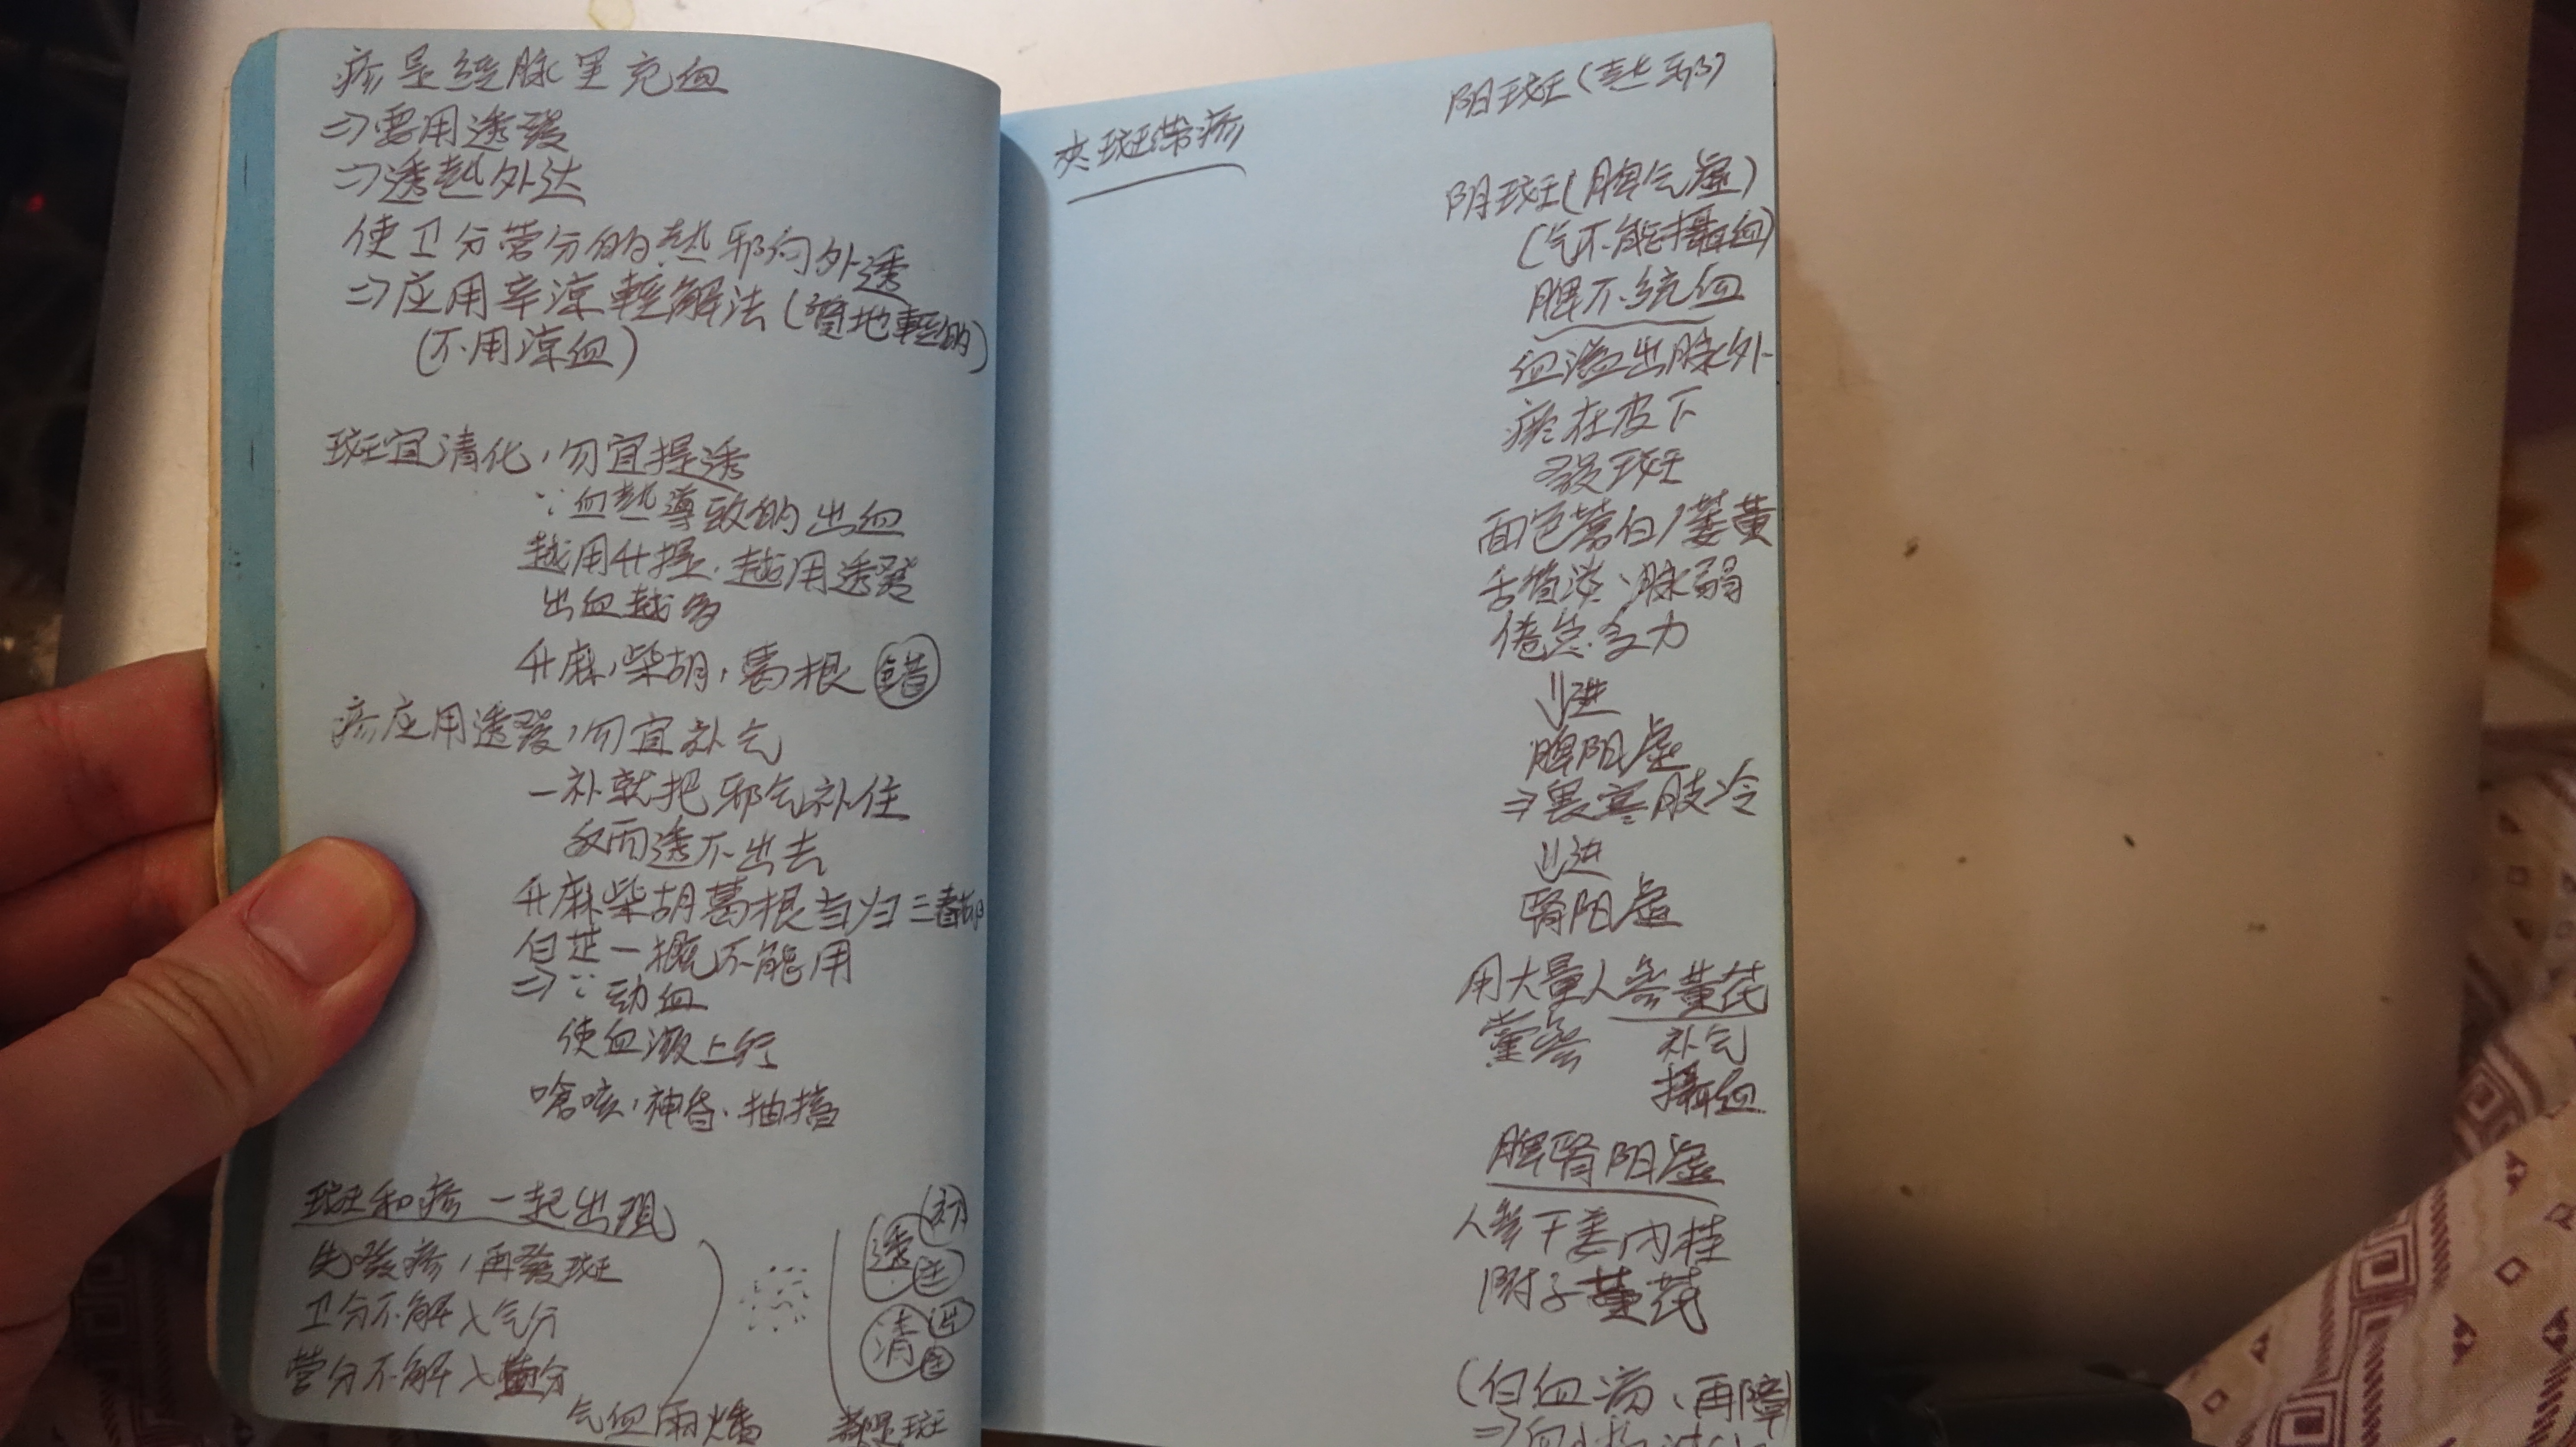 疹是经脉里充血
⇒要用透發
⇒透热外达
使卫分营分的热邪向外透
⇒应用辛凉輕解法(質地輕的)
(不用凉血)
斑宜清化,勿宜提透
∵血热導致的出血
越用升提、越用透發
出血越多
升麻,柴胡,葛根 錯
疹应用透發,勿宜补气
一补就把邪气补住
反而透不出去
升麻柴胡葛根当归三春胡
白芷一概不能用
⇒∵动血
使血液上行
嗆咳,神昏、抽搐
斑和疹一起出现
先發疹,再發斑
卫分不解入气分
营分不解入血分
气血兩燔
透
清
都是斑
夹斑带疹
阳斑(热邪)
阴斑(脾气虚)
(气不能攝血)
脾不统血
血溢出脉外
瘀在皮下
發斑
面色蒼白/萎黄
舌質淡、脉弱
倦怠乏力
⇓进
脾阳虚
⇒畏寒肢冷
⇓进
腎阳虚
用大量人参黄芪
党参 补气
攝血
脾腎阳虚
人参干姜肉桂
附子黄芪
(白血病、再障